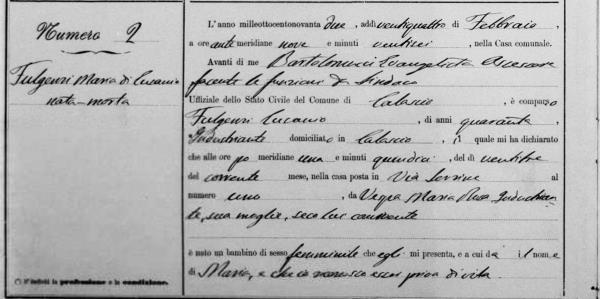 Numero 2
Fulgenzi Maria di Lucanio
nata-morta
L'anno milleottocentonovanta due, addì ventiquattro di Febbraio,
a ore ante meridiane nove e minuti venticinque, nella Casa comunale.
Avanti di me Bartolomucci Evangelista Assessore
facente le funzioni da Sindaco
Uffiziale dello Stato Civile del Comune di Calascio, è comparso
Fulgenzi Lucanio, di anni quaranta,
Industriante domiciliato in Calascio, il quale mi ha dichiarato
che alle ore po meridiane una e minuti quindici, del dì ventitre
del corrente mese, nella casa posta in Via al
numero uno, da Maria Rosa
sua moglie, seco lui convivente
è nato un bambino di sesso femminile che egli mi presenta, e a cui dà il nome
di Maria, e priva di vita.
(*) S'indichi la professione o la condizione.